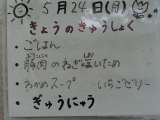 5月24日(月)
きょうのきゅうしょく
・ごはん
ぶたにく
・豚肉のねぎ塩いため
・わかめスープ ・いちごゼリー
・ぎゅうにゅう